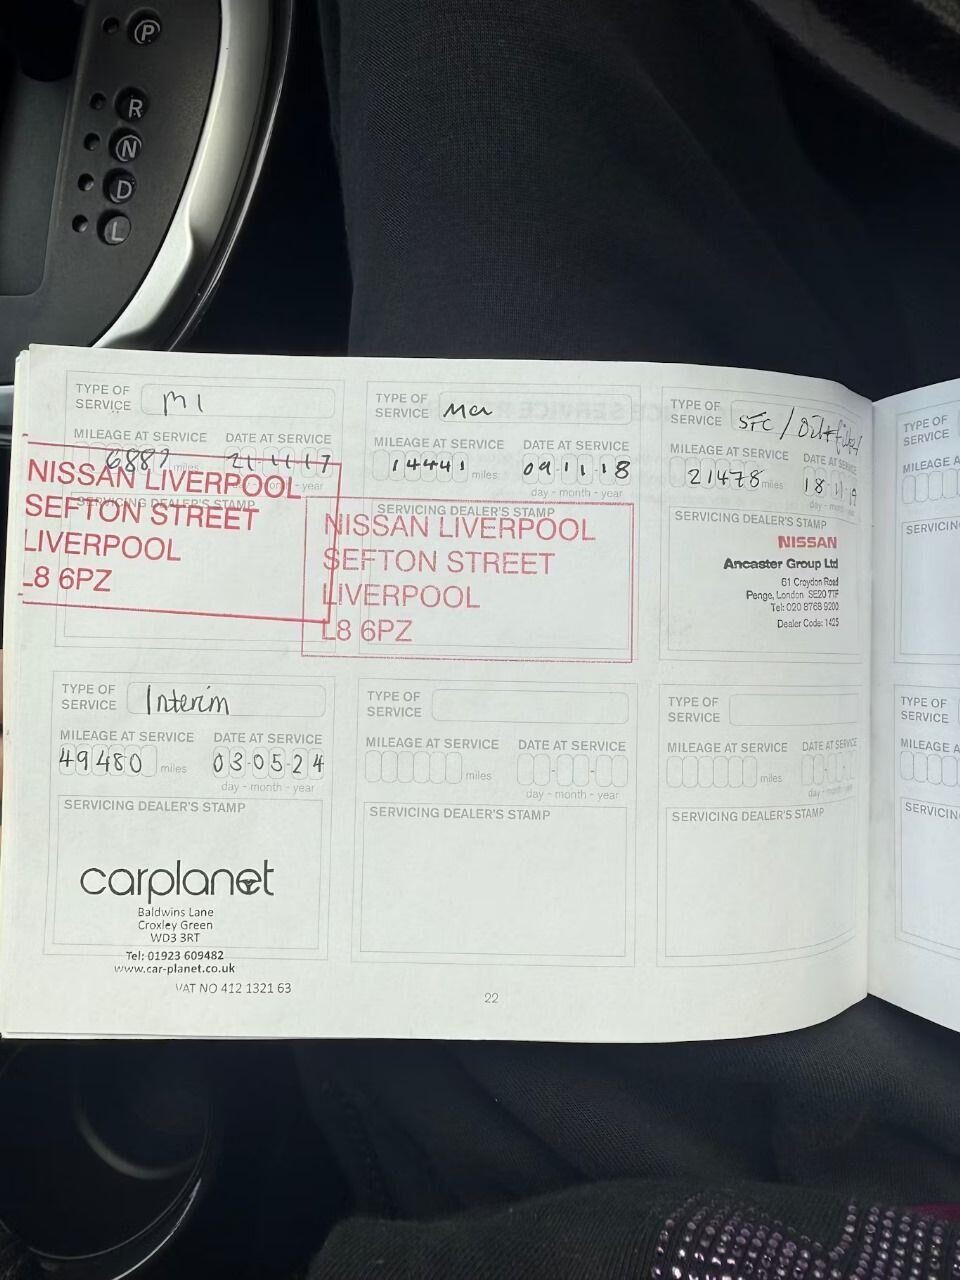 P
R
N
D
L
TYPE OF
SERVICE
M1
MILEAGE AT SERVICE DATE AT SERVICE
6887 miles 21-11-17
day - month - year
SERVICING DEALER'S STAMP
NISSAN LIVERPOOL
SEFTON STREET
LIVERPOOL
L8 6PZ
TYPE OF
SERVICE
MILEAGE AT SERVICE DATE AT SERVICE
14441 miles 09-11-18
day - month - year
SERVICING DEALER'S STAMP
NISSAN LIVERPOOL
SEFTON STREET
LIVERPOOL
L8 6PZ
TYPE OF
SERVICE
MILEAGE AT SERVICE DATE AT SERVICE
21478 miles 18-11-
SERVICING DEALER'S STAMP
NISSAN
Ancaster Group Ltd
61 Croydon Road
Penge, London SE20 7TF
Tel: 020 8768 9200
Dealer Code: 1425
TYPE OF
SERVICE
MILEAGE A
SERVICIN
TYPE OF
SERVICE
Interim
MILEAGE AT SERVICE DATE AT SERVICE
49480 miles 03-05-24
day - month - year
SERVICING DEALER'S STAMP
carplanet
Baldwins Lane
Croxley Green
WD3 3RT
Tel: 01923 609482
www.car-planet.co.uk
VAT NO 412 1321 63
TYPE OF
SERVICE
MILEAGE AT SERVICE DATE AT SERVICE
miles
day - month - year
SERVICING DEALER'S STAMP
TYPE OF
SERVICE
MILEAGE AT SERVICE DATE AT SERVICE
miles
day - month - year
SERVICING DEALER'S STAMP
TYPE OF
SERVICE
MILEAGE A
SERVICIN
22